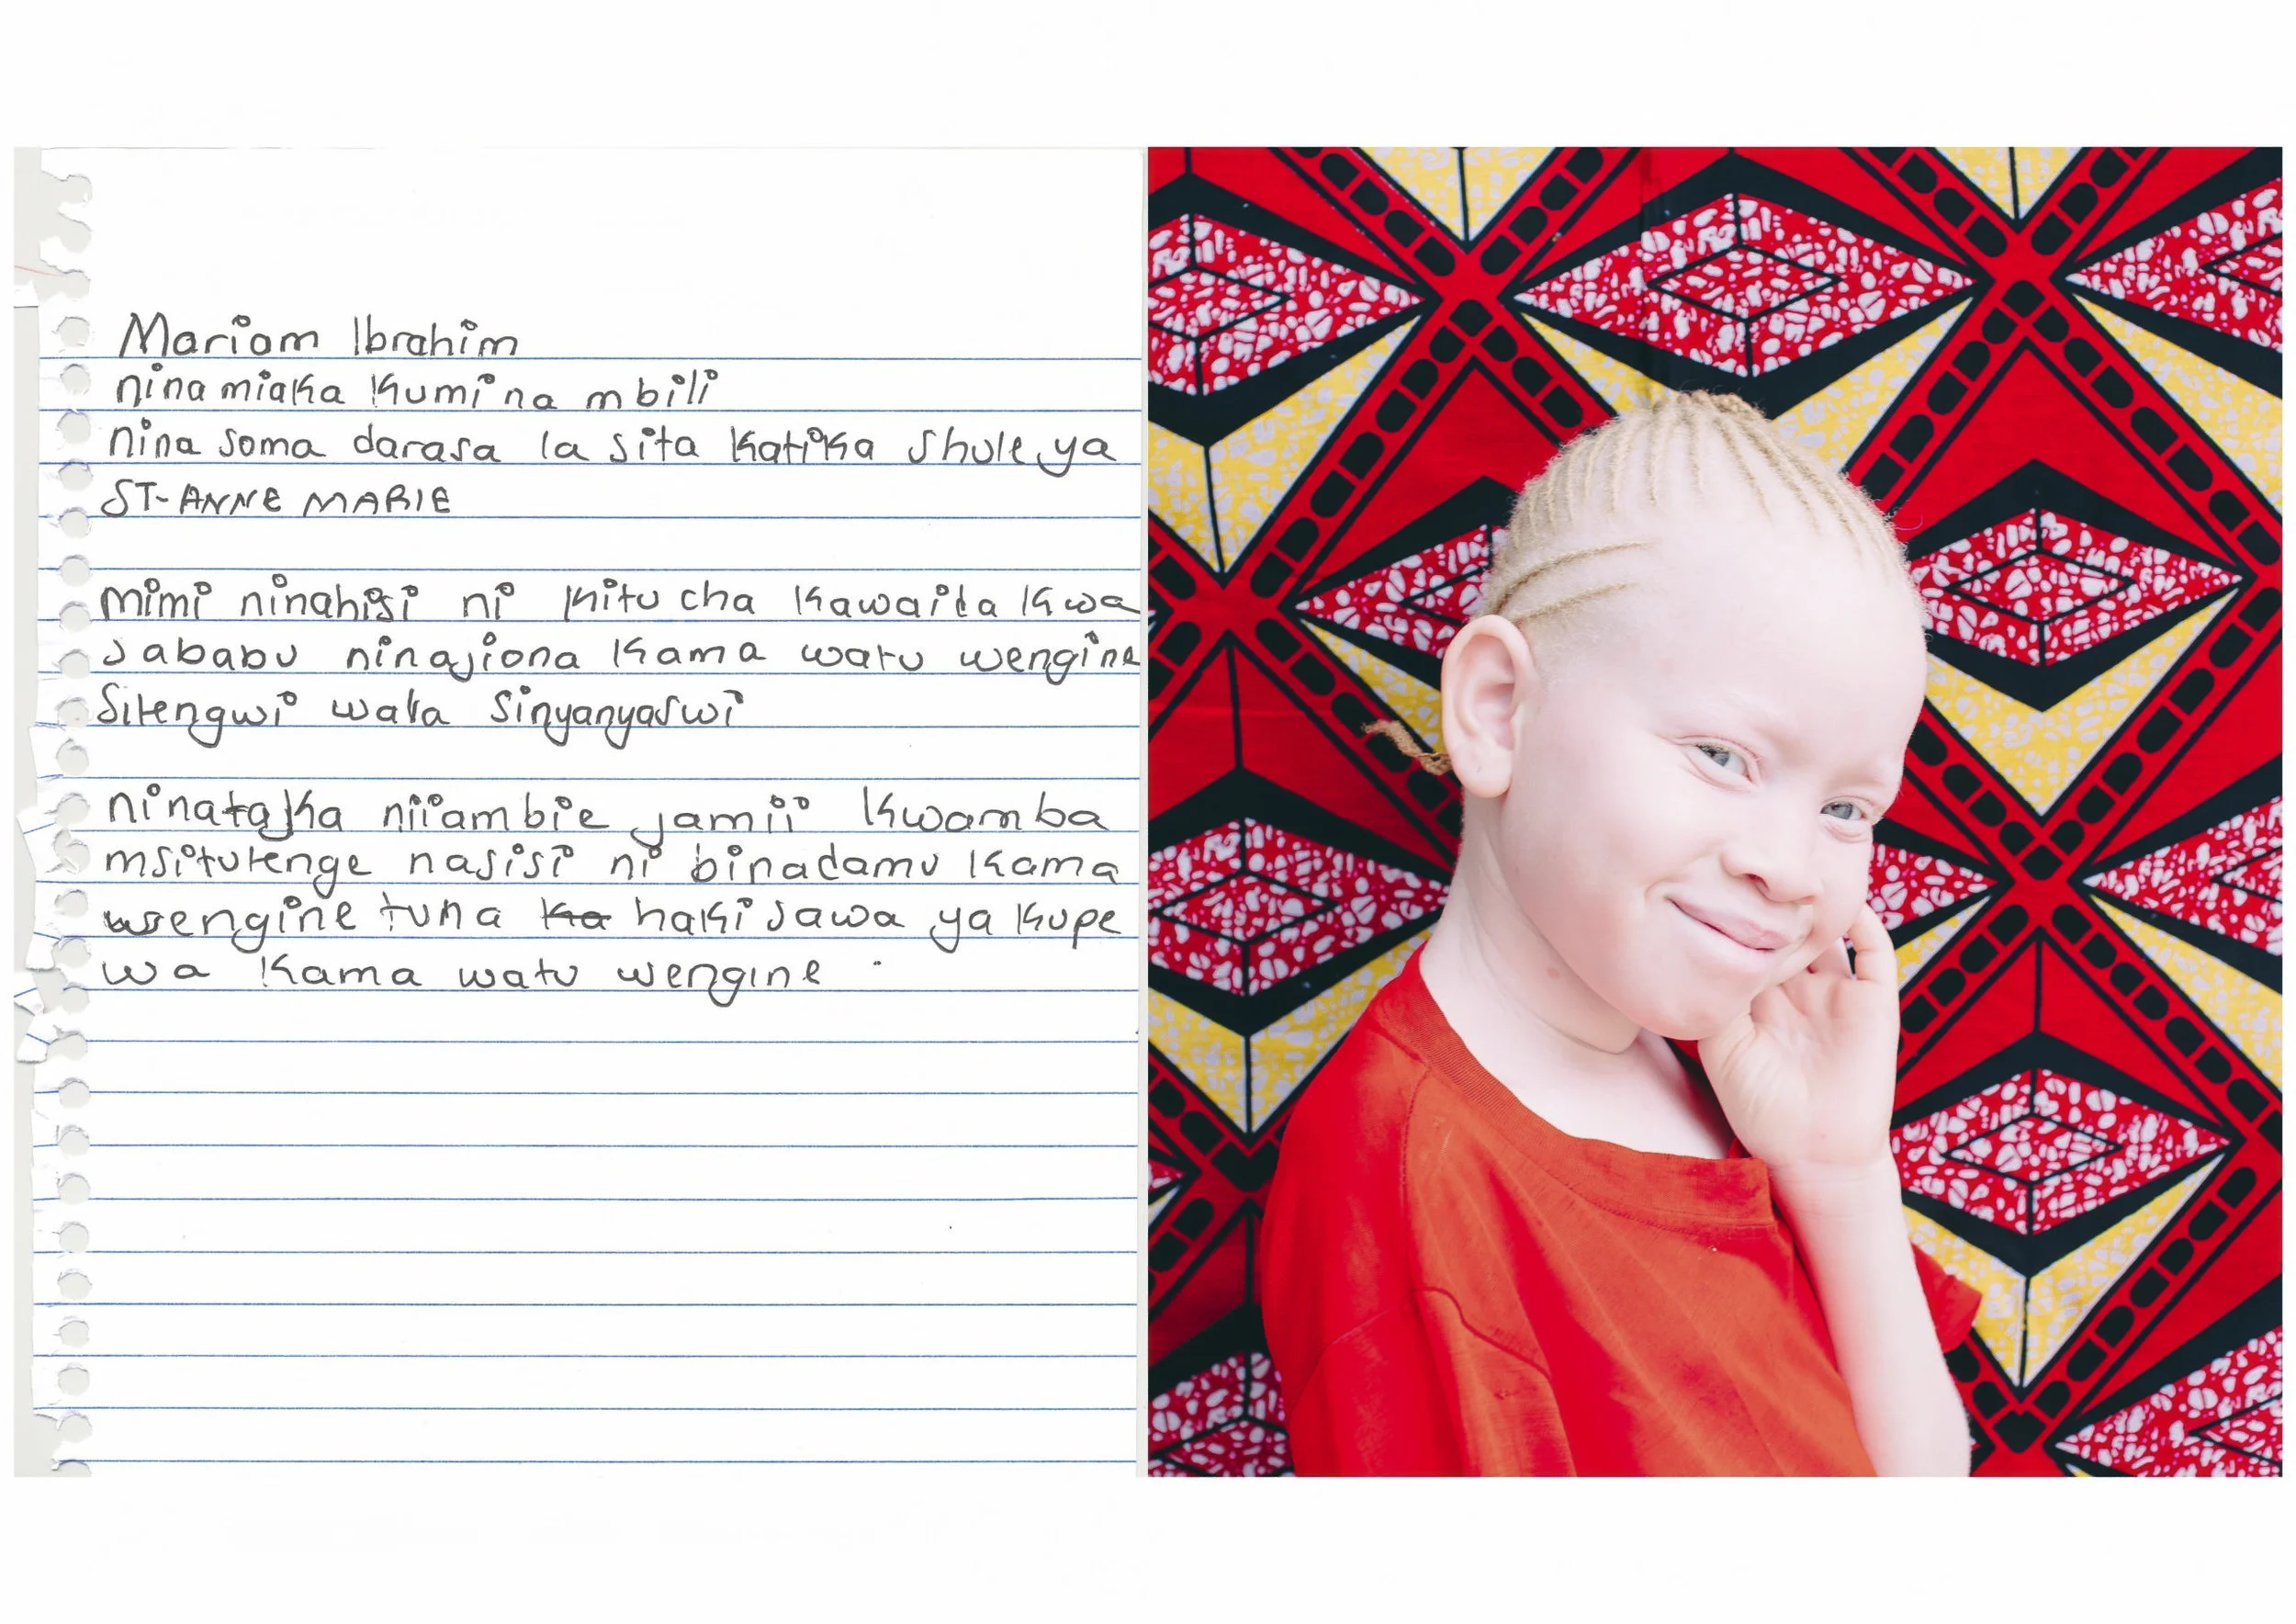 Mariam Ibrahim
nina miaka kumi na mbili
nina soma darasa la sita katika shule ya
ST-ANNE MARIE
mimi ninahisi ni kitu cha kawaida kwa
sababu ninajiona kama watu wengine
sitengwi wala sinyanyaswi
ninataka niiambie jamii kwamba
msitutenge nasisi ni binadamu kama
wengine tuna ka haki sawa ya kupe
wa kama watu wengine .